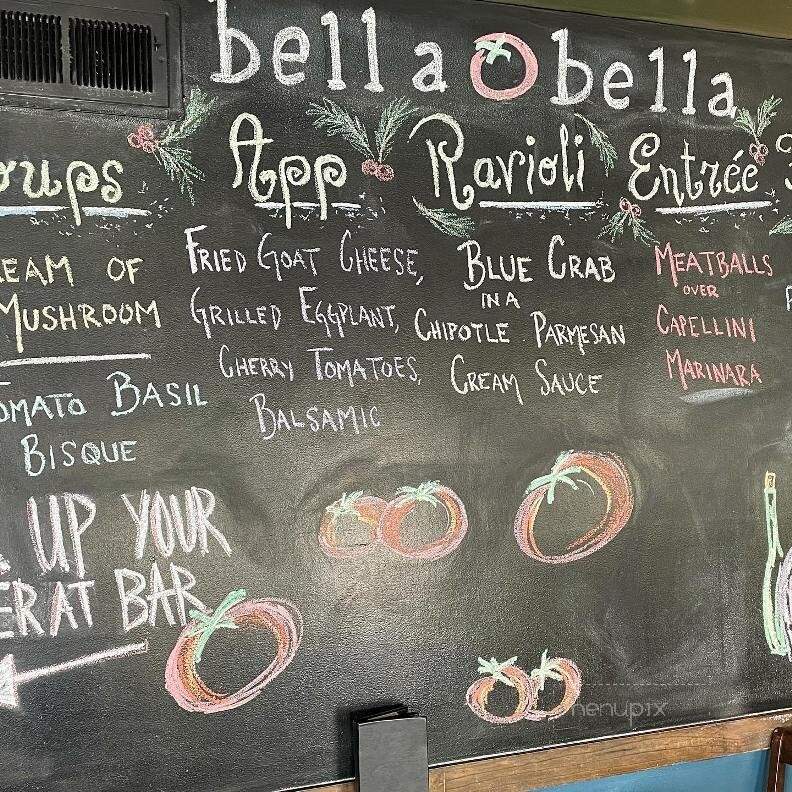 bella bella
oups
App
Ravioli
Entrée
EAM OF
MUSHROOM
OMATO BASIL
BISQUE
FRIED GOAT CHEESE,
GRILLED EGGPLANT,
CHERRY TOMATOES,
BALSAMIC
BLUE CRAB
IN A
CHIPOTLE PARMESAN
CREAM SAUCE
MEATBALLS
OVER
CAPELLINI
MARINARA
UP YOUR
ER AT BAR
menupix